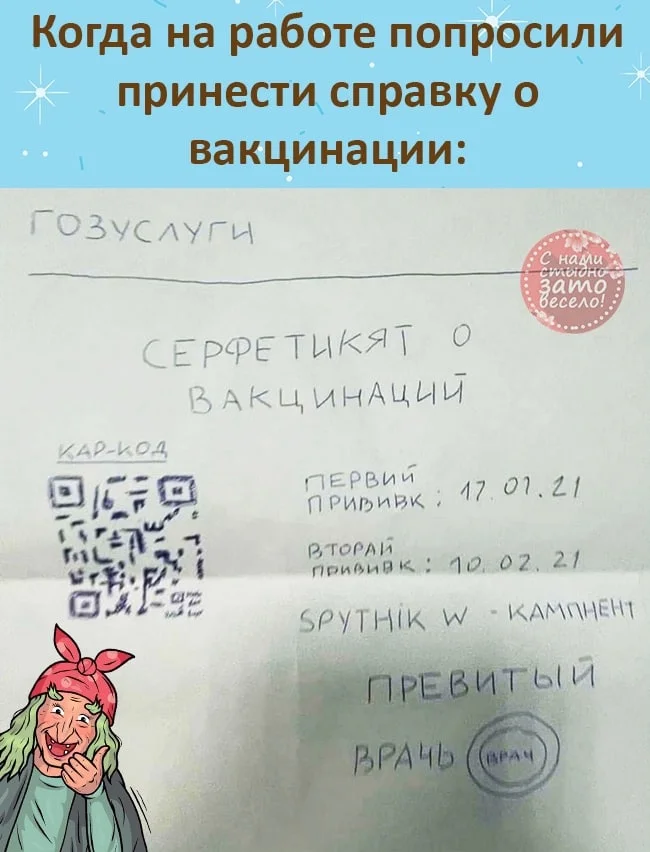 Когда на работе попросили
принести справку о
вакцинации:
ГОЗУСЛУГИ
С нами
стыдно
зато
весело!
СЕРФЕТИКЯТ О
ВАКЦИНАЦИЙ
КАР-КОД
ПЕРВИЙ
ПРИВИВК : 17.01.21
ВТОРАЙ
ПРИВИВК : 10.02.21
SPYTHIK W - КАМПНЕНТ
ПРЕВИТЫЙ
ВРАЧЬ ВРАЧ